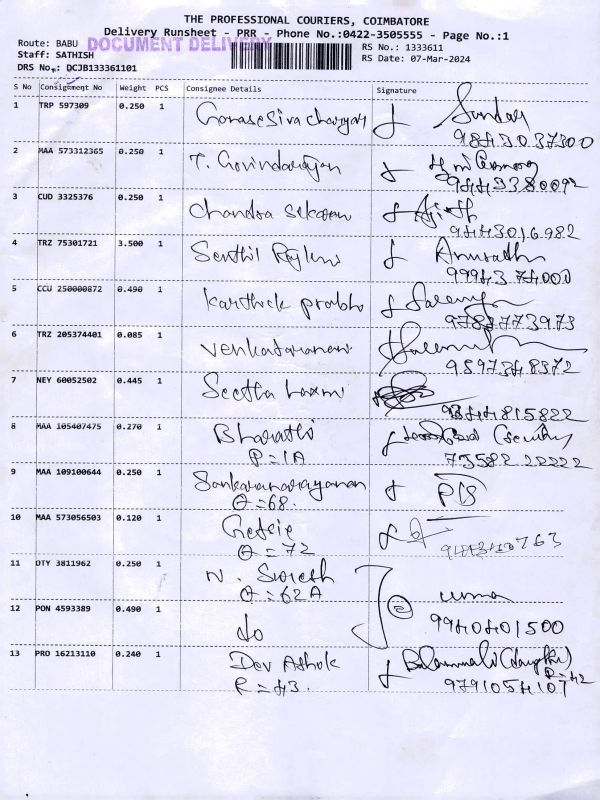 THE PROFESSIONAL COURIERS, COIMBATORE
Delivery Runsheet - PRR - Phone No.:0422-3505555 - Page No.:1
Route: BABU DOCUMENT DELIVERY RS No.: 1333611
Staff: SATHISH RS Date: 07-Mar-2024
DRS No.: DCJB133361101
S No Consignment No Weight PCS Consignee Details Signature
1 TRP 597309 0.250 1
9843037300
2 MAA 573312365 0.250 1 T. Govindarajan
9443380092
3 CUD 3325376 0.250 1 Chandra Sekaran
9443016982
4 TRZ 75301721 3.500 1 Senthil
9994374000
5 CCU 250000872 0.490 1 Karthick prabhu
6 TRZ 205374401 0.085 1 Venkataraman
9597348372
7 NEY 60052502 0.445 1 Seetha Laxmi
9344815822
8 MAA 105407475 0.270 1 Bharathi
P=1A 73582 22222
9 MAA 109100644 0.250 1 Sankaranarayanan
O=68.
10 MAA 573056503 0.120 1
O=72
11 DTY 3811962 0.250 1 N. Suresh uma
O=62A
12 PON 4593389 0.490 1 do 2 9940401500
13 PRO 16213110 0.240 1 Dev Ashok
R=43. R=42
9791054107